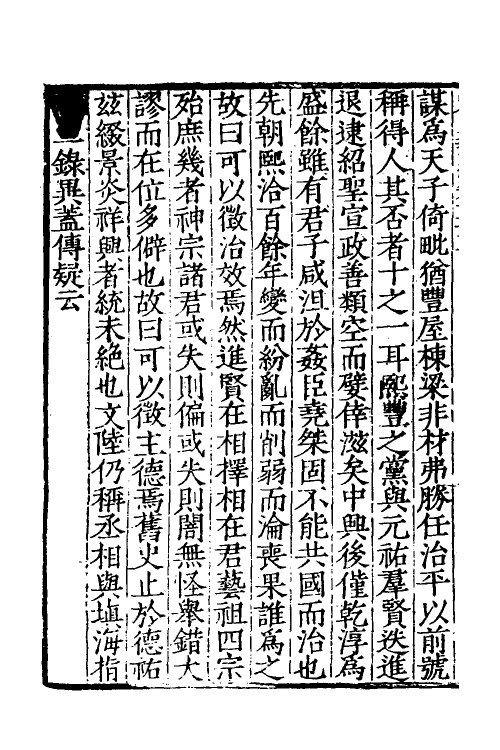 謀為天子倚毗猶豐屋棟梁非材弗勝任治平以前號
稱得人其否者十之一耳熙豐之黨與元祐羣賢迭進
退逮紹聖宣政善類空而嬖倖滋矣中興後僅乾淳為
盛餘雖有君子咸沮於姦臣堯桀固不能共國而治也
先朝熙洽百餘年變而紛亂而削弱而淪喪果誰為之
故曰可以徵治效焉然進賢在相擇相在君藝祖四宗
殆庶幾者神宗諸君或失則偏或失則闇無怪舉錯大
謬而在位多僻也故曰可以徵主德焉舊史止於德祐
兹綴景炎祥興者統未絶也文陸仍稱丞相與塡海指
一錄異蓋傳疑云